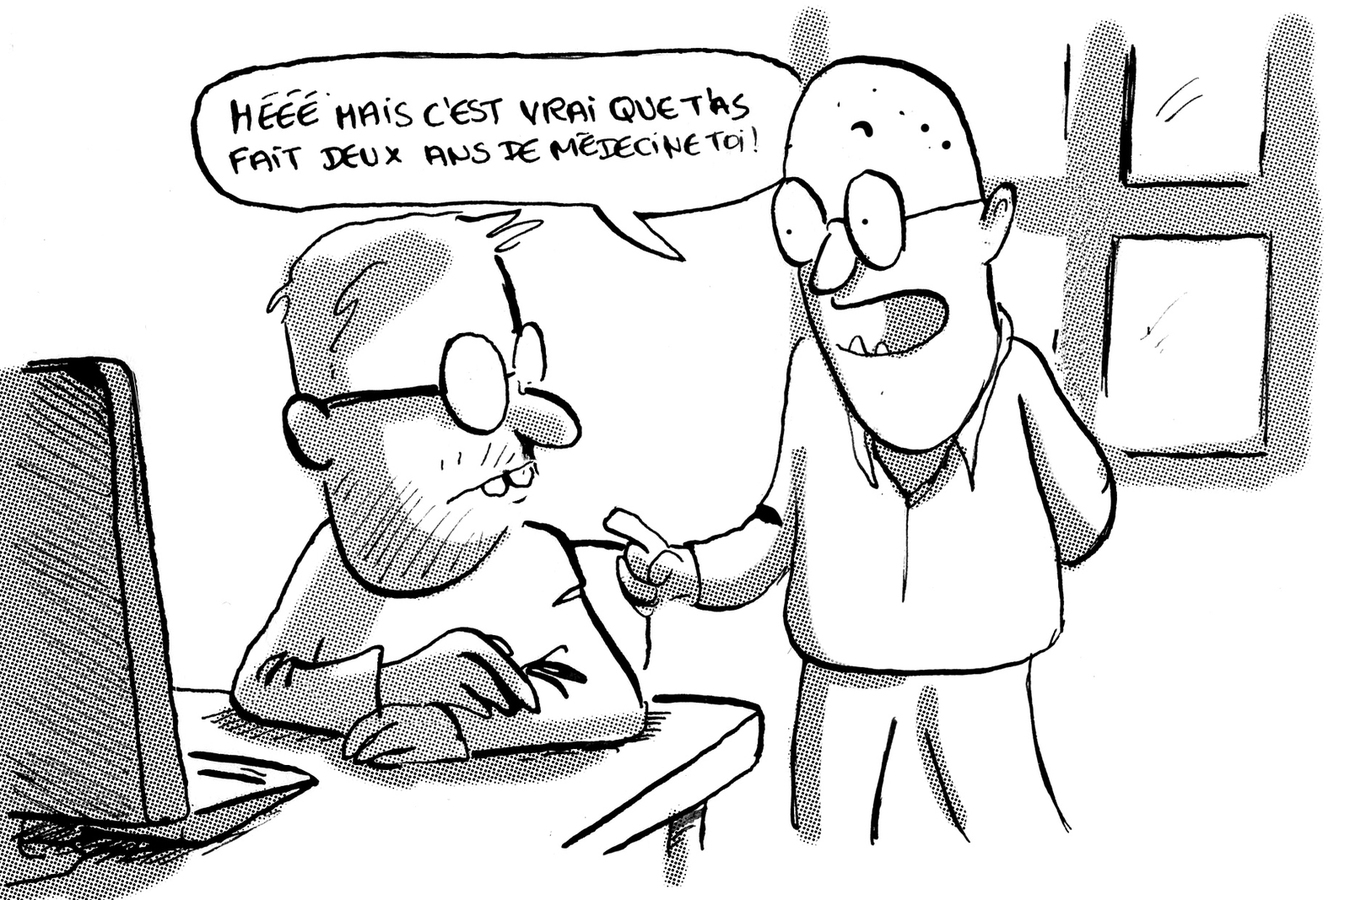 HÉÉÉ MAiS C'EST VRAi QUE T'AS
FAiT DEUX ANS DE MÉDECiNE TOi!